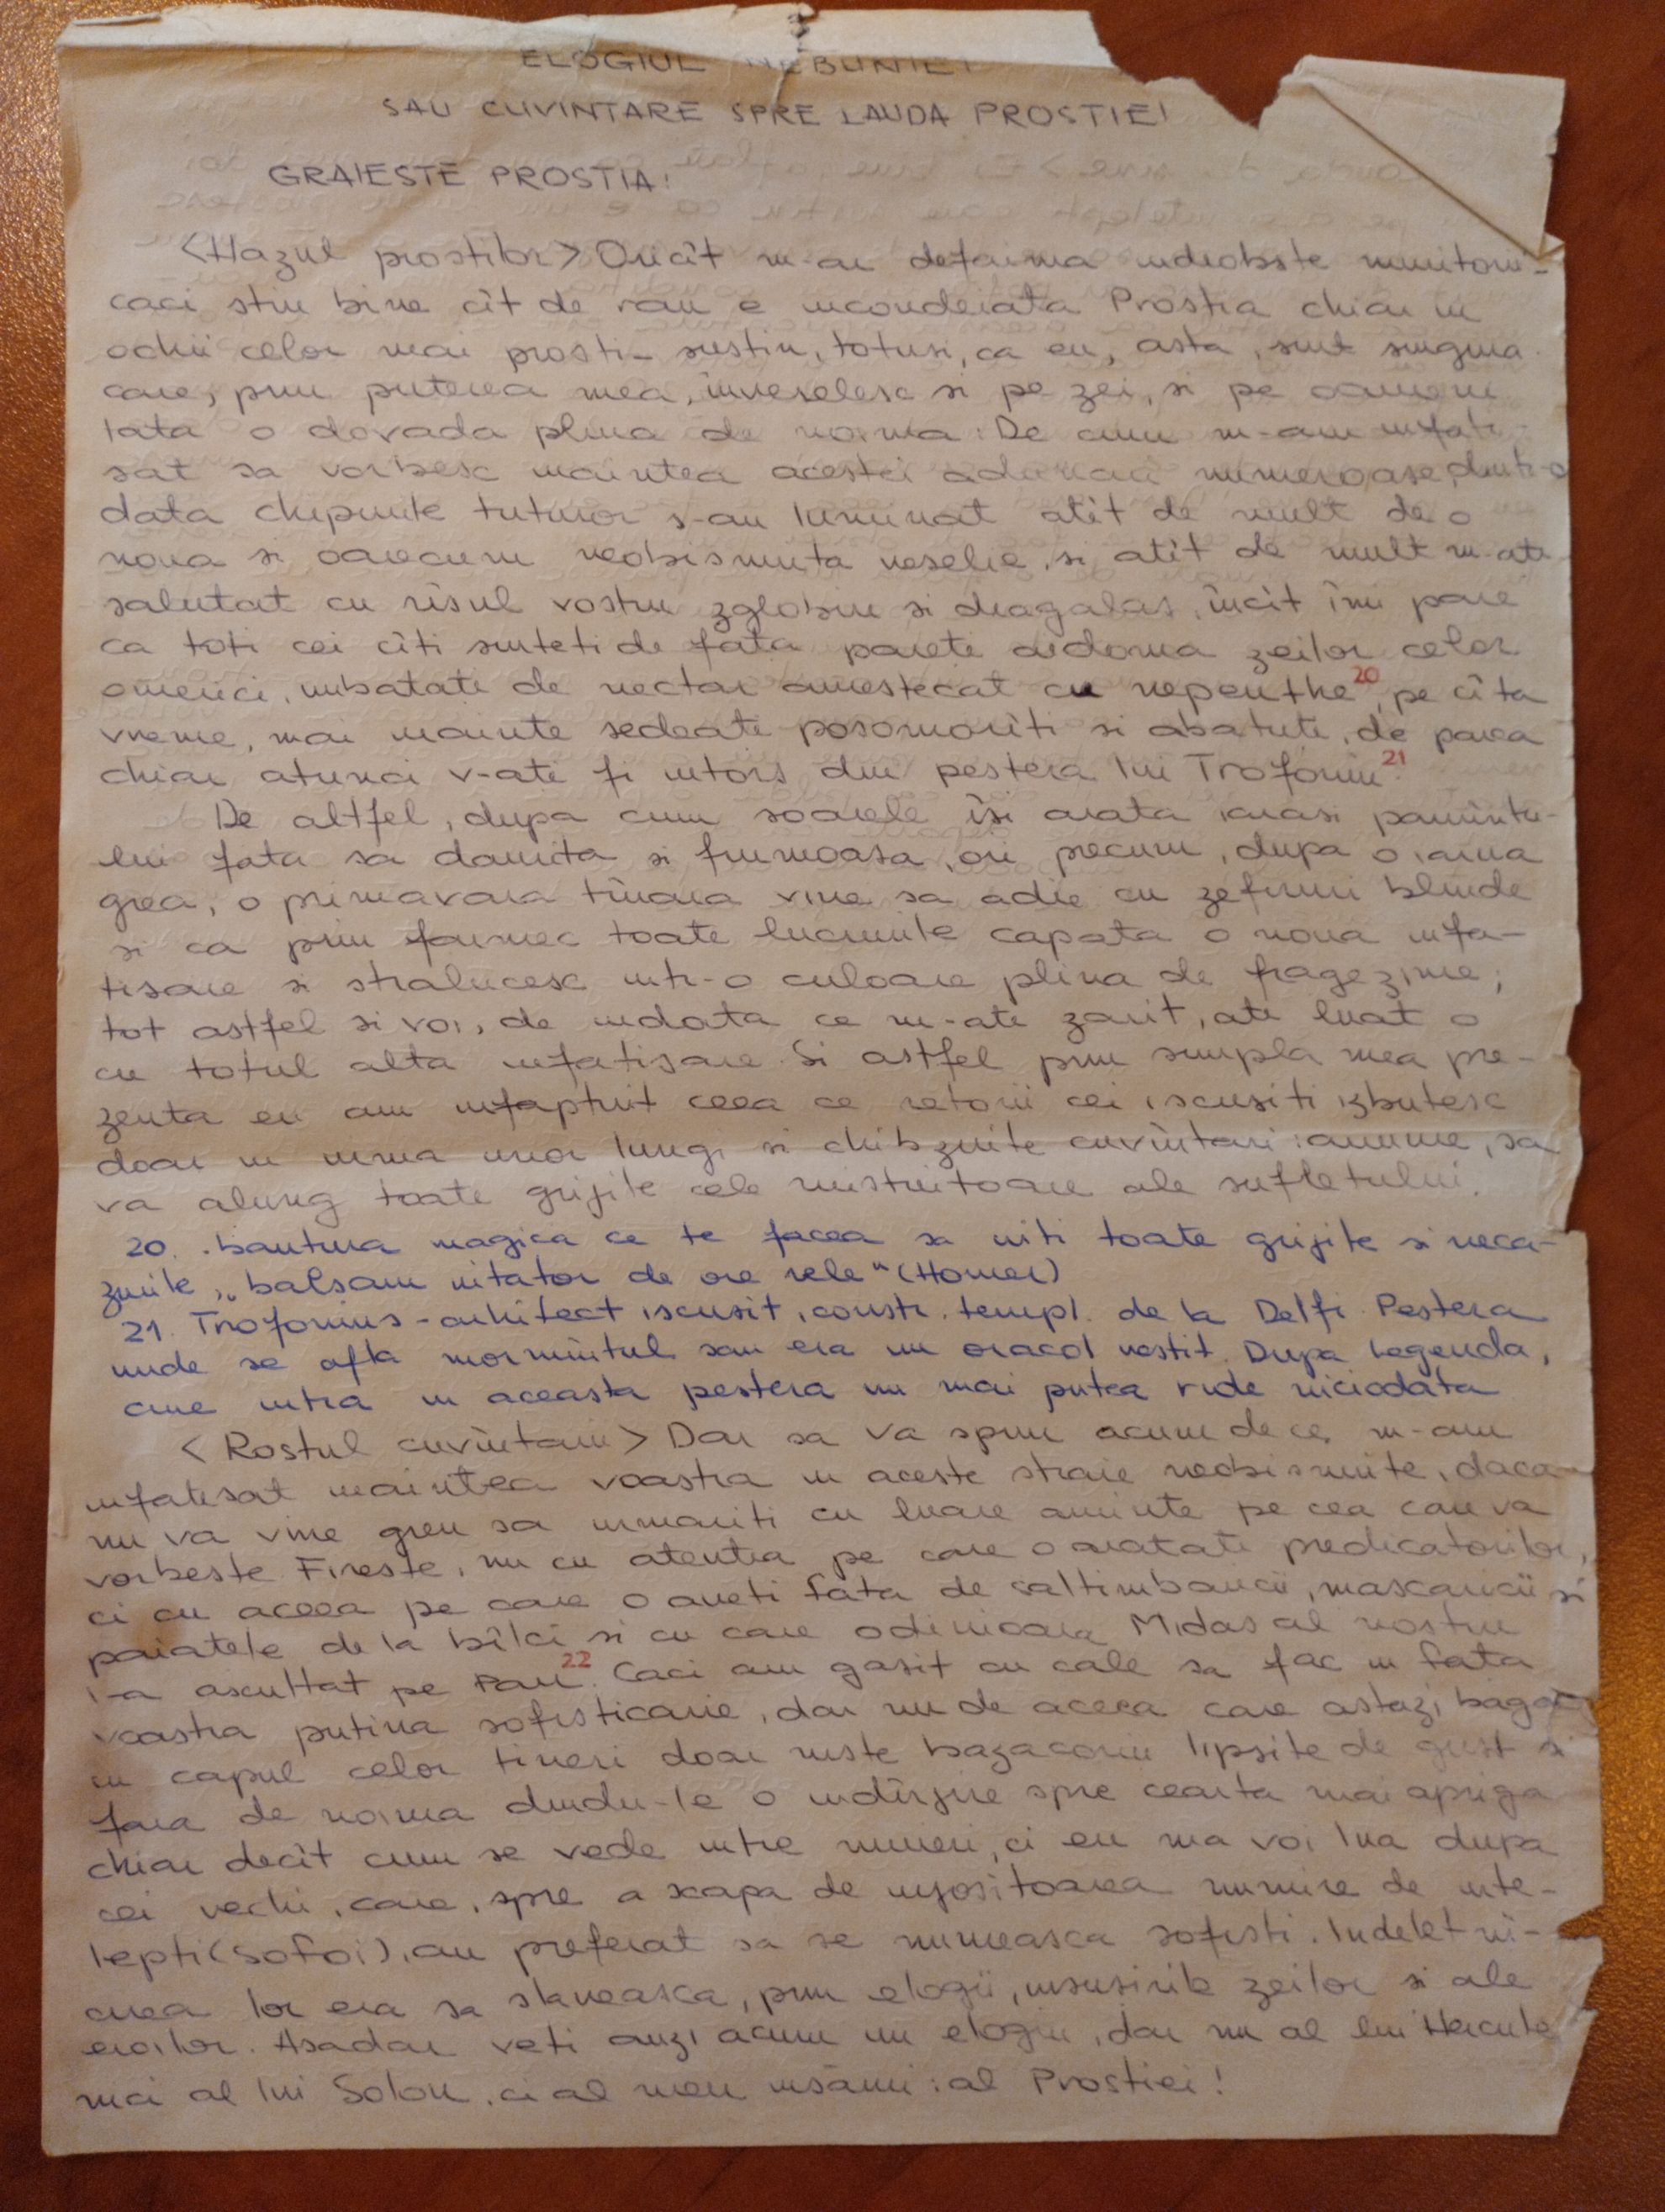 ELOGIUL NEBUNIEI
SAU CUVINTARE SPRE LAUDA PROSTIEI
GRAIESTE PROSTIA:
<Hazul prostilor> Oricît m-ar defaima indeobste muritorii-
caci stiu bine cît de rau e inconderata Prostia chiar in
ochii celor mai prosti- sustin, totusi, ca eu, asta, sint singura
care, prin puterea mea, înveselesc si pe zei, si pe oameni
Iata o dovada plina de noima: De cum m-am infati-
sat sa vorbesc inaintea acestei adunari numeroase, dintr-o
data chipurile tuturor s-au luminat atît de mult de o
noua si oarecum neobisnuita veselie, si atît de mult m-ati
salutat cu rîsul vostru zglobiu si dragalas, încît îmi pare
ca toti cei cîti sinteti de fata pareti aidoma zeilor celor
omerici, imbatati de nectar amestecat cu nepenthe 20, pe cîta
vreme, mai inainte sedeati posomorîti si abatuti, de parca
chiar atunci v-ati fi intors din pestera lui Trofoniu 21.
De altfel, dupa cum soarele îsi arata iarasi pamîntu-
lui fata sa daurita si frumoasa, ori precum, dupa o iarna
grea, o primavara tînara vine sa adie cu zefiruri blinde
si ca prin farmec toate lucrurile capata o noua infa-
tisare si stralucesc intr-o culoare plina de fragezime;
tot astfel si voi, de indata ce m-ati zarit, ati luat o
cu totul alta infatisare. Si astfel prin simpla mea pre-
zenta eu am infaptuit ceea ce retorii cei iscusiti izbutesc
doar in urma unor lungi si chibzuite cuvîntari: anume, sa
va alung toate grijile cele mistuitoare ale sufletului.
20. bautura magica ce te facea sa uiti toate grijile si neca-
zurile, „balsam uitator de ore rele" (Homer)
21. Trofonius - arhitect iscusit, constr. templ. de la Delfi. Pestera
unde se afla mormîntul sau era un oracol vestit. Dupa legenda,
cine intra in aceasta pestera nu mai putea ride niciodata
<Rostul cuvîntarii> Dar sa va spun acum de ce m-am
infatisat inaintea voastra in aceste straie neobisnuite, daca
nu va vine greu sa urmariti cu luare aminte pe cea care va
vorbeste. Fireste, nu cu atentia pe care o aratati predicatorilor,
ci cu aceea pe care o aveti fata de saltimbancii, mascaricii si
paiatele de la bîlci si cu care odinioara Midas al nostru
l-a ascultat pe Pan 22. Caci am gasit cu cale sa fac in fata
voastra putina sofisticarie, dar nu de aceea care astazi baga
in capul celor tineri doar niste bazaconii lipsite de gust si
fara de noima dindu-le o indîrjire spre cearta mai apriga
chiar decît cum se vede intre muieri, ci eu ma voi lua dupa
cei vechi, care, spre a scapa de injositoarea numire de inte-
lepti (sofoi), au preferat sa se numeasca sofisti. Indeletni-
cirea lor era sa slaveasca, prin elogii, insusirile zeilor si ale
eroilor. Asadar veti auzi acum un elogiu, dar nu al lui Hercule
nici al lui Solon, ci al meu insami: al Prostiei!